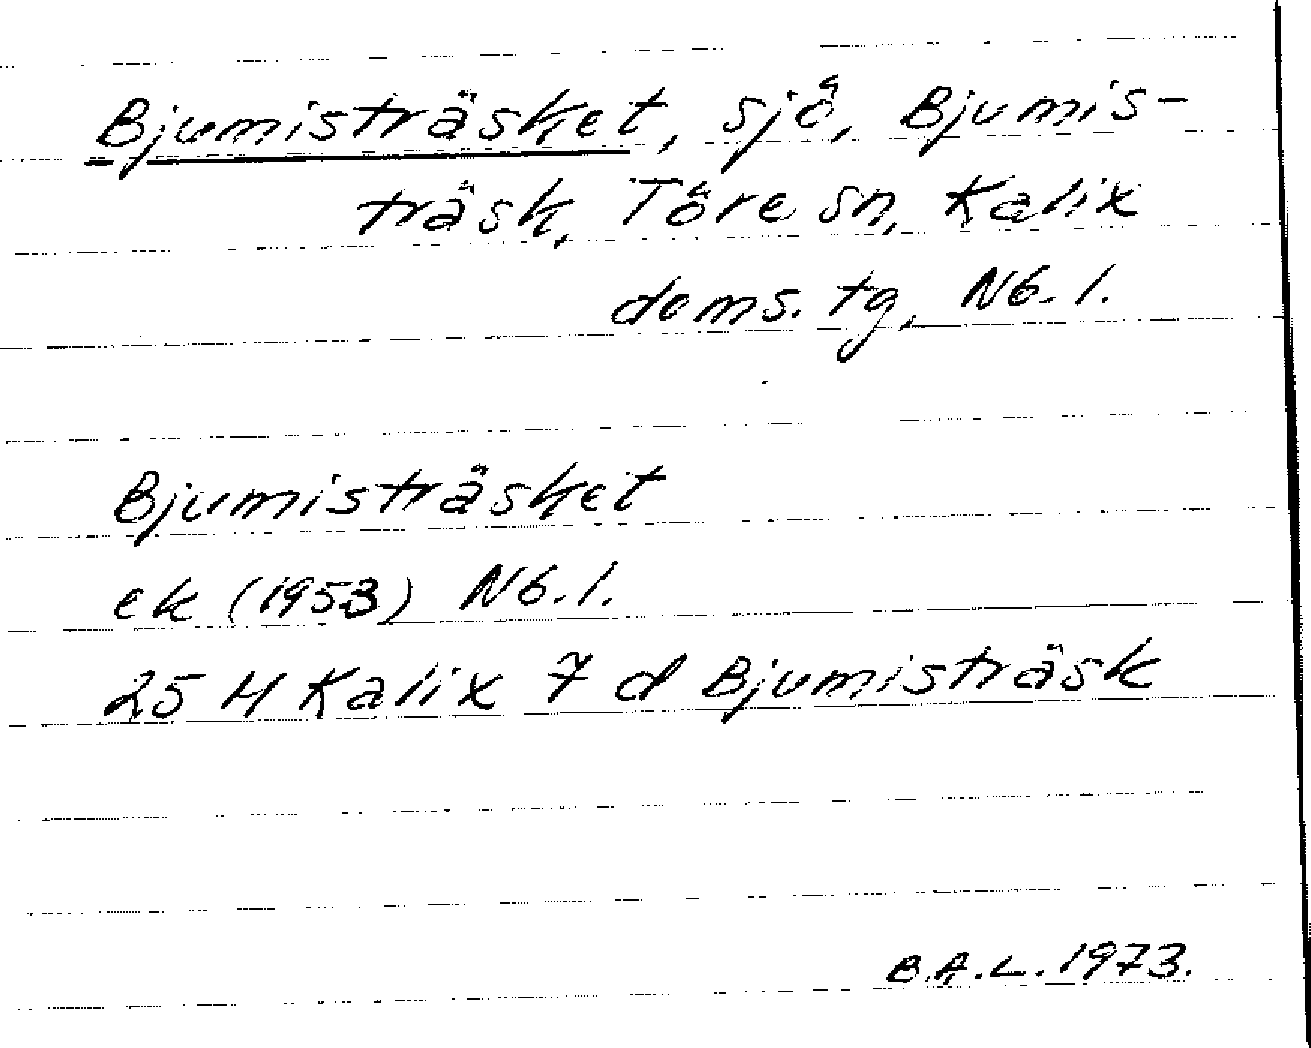 Bjumisträsket, sjö, Bjumis-
träsk, Töre sn, Kalix
doms. tg, Nb. l.
Bjumisträsket
ek (1953) Nb. l.
25 M Kalix 7 d Bjumisträsk
B.A.L. 1973.